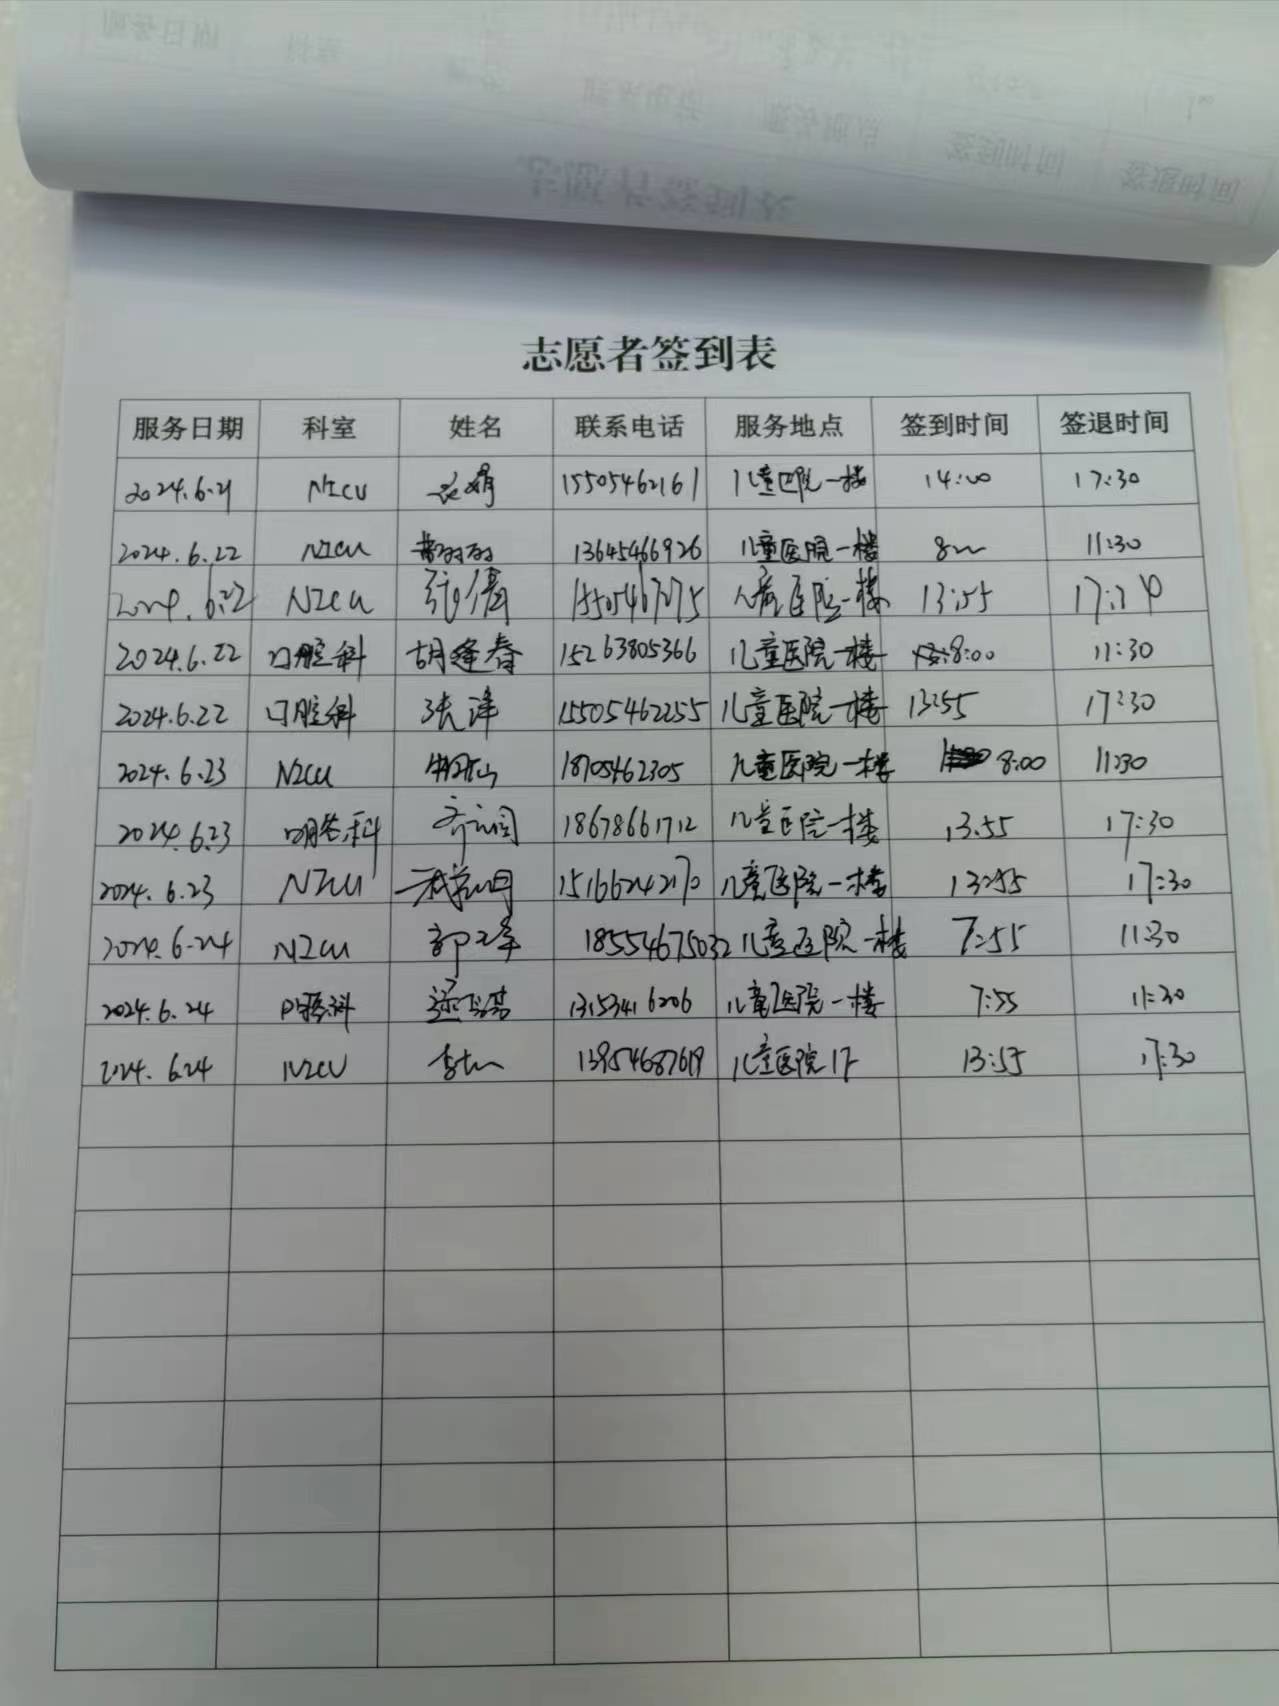 志愿者签到表
服务日期 科室 姓名 联系电话 服务地点 签到时间 签退时间
2024.6.21 NICU 15505462161 儿童医院一楼 14:00 17:30
2024.6.22 NICU 13645466926 儿童医院一楼 11:30
2024.6.22 NICU 张倩 儿童医院一楼 13:55
2024.6.22 口腔科 胡逢春 15263805366 儿童医院一楼 8:00 11:30
2024.6.22 口腔科 张泽 15505462255 儿童医院一楼 13:55 17:30
2024.6.23 NICU 18705462305 儿童医院一楼 8:00 11:30
2024.6.23 口腔科 18678661712 儿童医院一楼 13.55 17:30
2024.6.23 NICU 15166242170 儿童医院一楼 13:55 17:30
2024.6.24 NICU 18554675032 儿童医院一楼 7:55 11:30
2024.6.24 口腔科 13153416206 儿童医院一楼 7:55 11:30
2024.6.24 NICU 13954687619 儿童医院1F 13:55 17:30